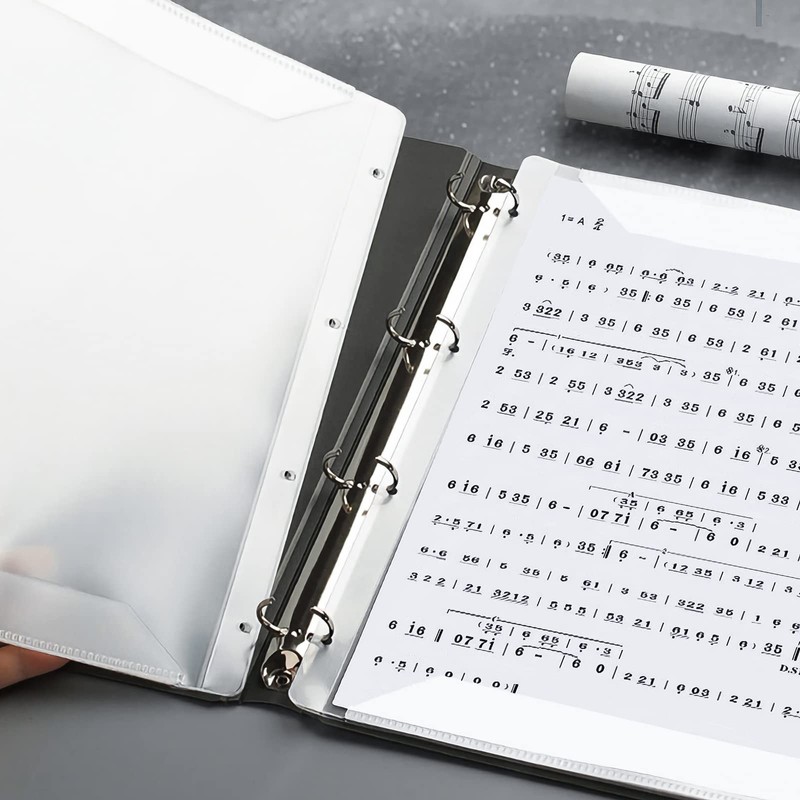 1=A 2/4
(35 | 6 65 | 6·6 63 | 2·2 21 | 6·
6 ·5 | 6 ) 35 ‖: 6 35 | 6 53 | 2 61
3 322 | 3 35 | 6 35 | 6 53 | 2 61 | 2
6 - | (16 12 | 353 3 | 3) 35 | 6 35 | 6
2 53 | 2 55 | 3 322 | 3 35 | 6 35 | 6 5
2 53 | 25 21 | 6 - | 03 35 | 6 i6 | 5 33
6 i6 | 5 35 | 66 6i | 73 35 | 6 i6 | 5 33 |
(35 | 6 65 | 6 ·3 |
6 i6 | 5 35 | 6 - | 07 7i | 6 - | 6 0 | 2 21
2·5 71 | 6 ·5 | 6) 35 :‖ 6 - | (12 35 | 3 12 | 3
6·6 56 | 5 35 | 5 61 | 3 53 | 322 35 | 1 6 6
3 2 2 | 21 3212 | 5 5 5 | 53 21 | 61 65 | 6) 35
(35 | 6 65 | 6 ·3 |
6 i6 ‖ 07 7i | 6 - | 6 0 | 2 21 | 6 03 | 2 21 | 2·
D.S.
6 ·5 | 6 0 | 0 0) ‖